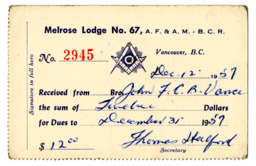 Melrose Lodge No. 67, A. F. & A. M. - B. C. R.
No. 2945
Vancouver, B.C.
Dec. 12 1957
Received from Bro John F. C. B. Vance
the sum of Twelve Dollars
for Dues to December 31 1957
$12.00 Thomas Halford
Secretary
Signature in full here